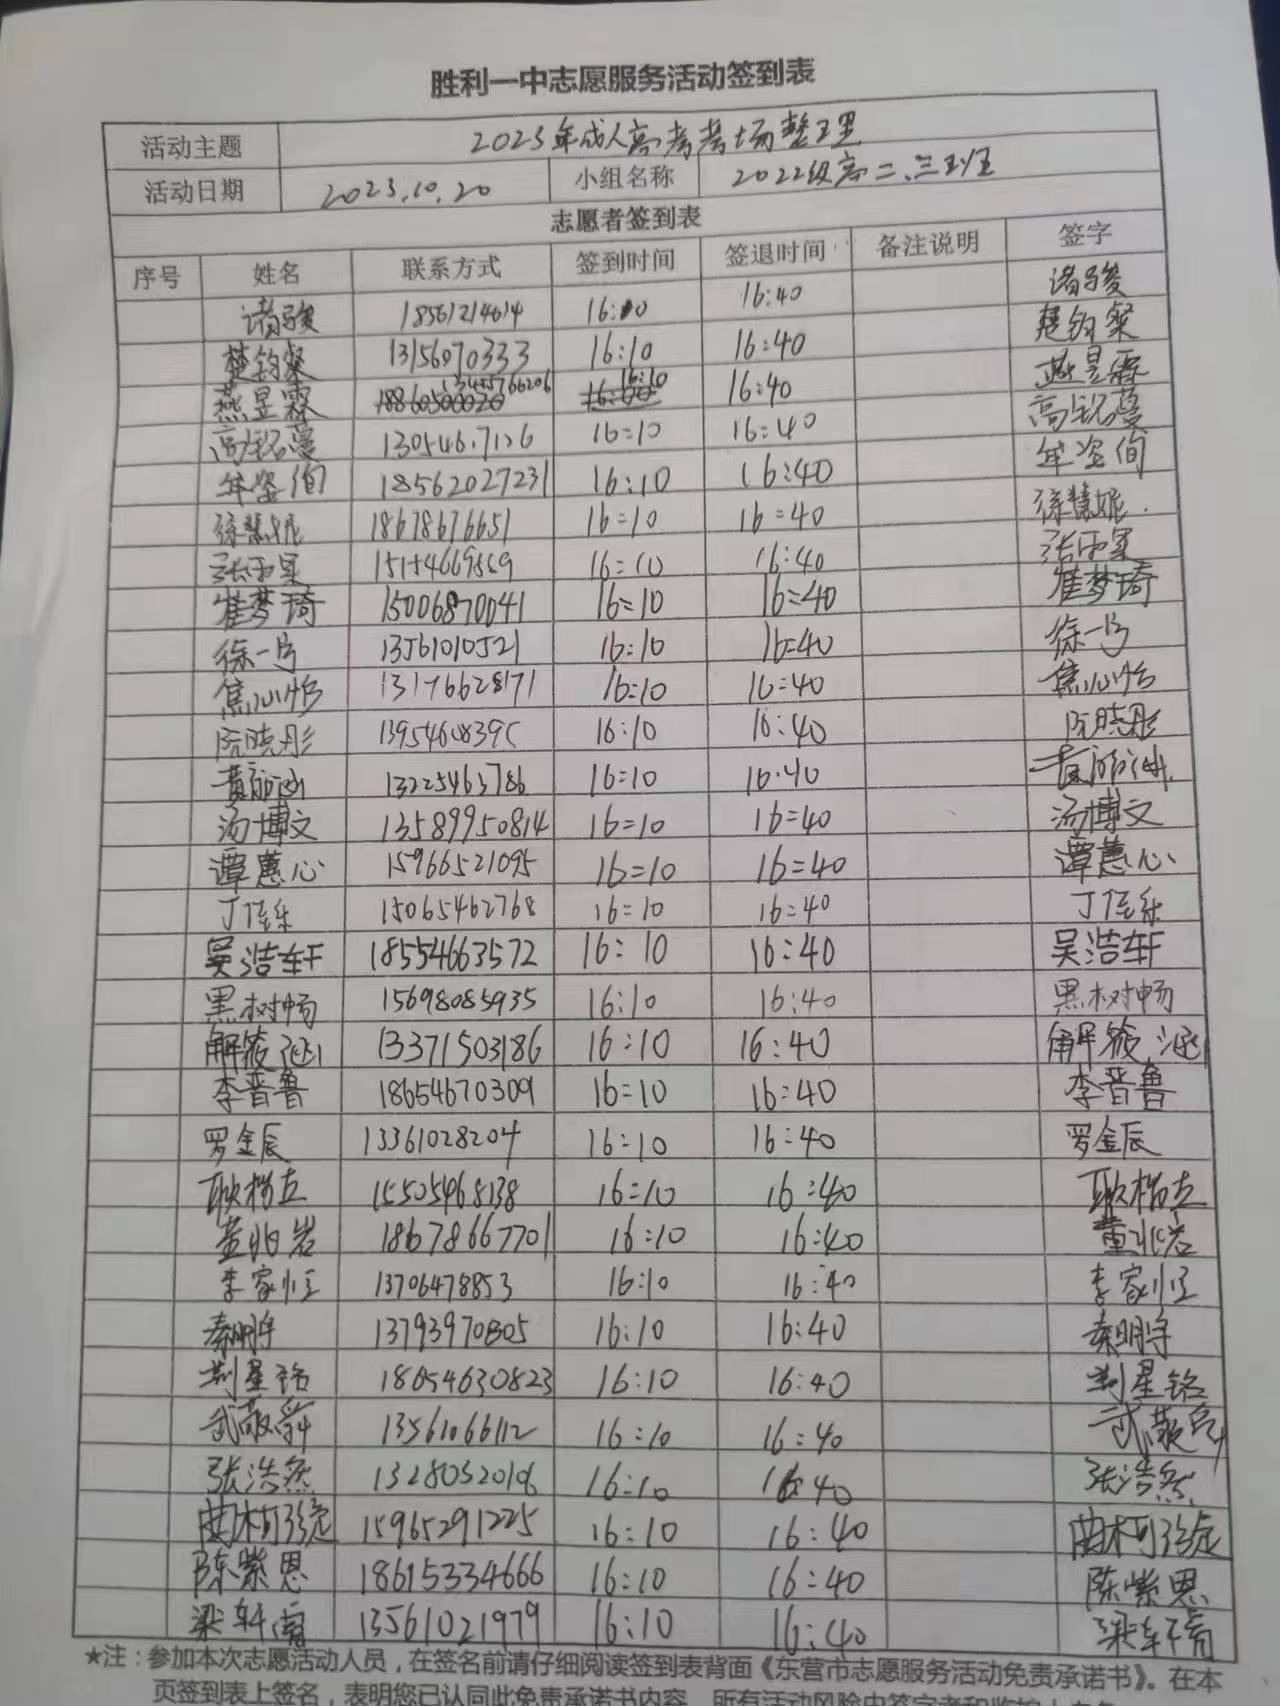 胜利一中志愿服务活动签到表
活动主题 2023年成人高考考场整理
活动日期 2023.10.20 小组名称 2022级高二、三班
志愿者签到表
序号 姓名 联系方式 签到时间 签退时间 备注说明 签字
诸骏 18561214614 16:10 16:40 诸骏
楚钧粲 13156070333 16:10 16:40 楚钧粲
燕昱霖 16:10 16:40 燕昱霖
高铭蔓 16:10 16:40 高铭蔓
年姿洵 18562027231 16:10 16:40 年姿洵
徐慧妮 18678676651 16:10 16:40 徐慧妮
张雨 16:10 16:40 张雨
崔梦琦 15006870041 16:10 16:40 崔梦琦
徐一 13561010521 16:10 16:40 徐一
焦心怡 13176628171 16:10 16:40 焦心怡
阮晓彤 16:10 16:40 阮晓彤
黄 13225463786 16:10 16:40 黄
汤博文 13589950814 16:10 16:40 汤博文
谭蕙心 15966521095 16:10 16:40 谭蕙心
丁佳乐 15065462768 16:10 16:40 丁佳乐
吴浩轩 18554663572 16:10 16:40 吴浩轩
黑树畅 15698085935 16:10 16:40 黑树畅
解筱涵 13371503186 16:10 16:40 解筱涵
李晋鲁 18654670309 16:10 16:40 李晋鲁
罗金辰 13361028204 16:10 16:40 罗金辰
耿 15505468138 16:10 16:40 耿
董兆岩 18678667701 16:10 16:40 董兆岩
李家恒 13706478853 16:10 16:40 李家恒
秦明宇 13793970805 16:10 16:40 秦明宇
荆星铭 18654630823 16:10 16:40 荆星铭
武敬舜 13561066112 16:10 16:40 武敬舜
张浩然 16:10 16:40 张浩然
曲木可 15965291225 16:10 16:40 曲木可
陈紫恩 18615334666 16:10 16:40 陈紫恩
梁轩 13561021979 16:10 16:40 梁轩
★注：参加本次志愿活动人员，在签名前请仔细阅读签到表背面《东营市志愿服务活动免责承诺书》。在本
页签到表上签名，表明您已认同此免责承诺书内容，所有活动风险由签字者和监护人